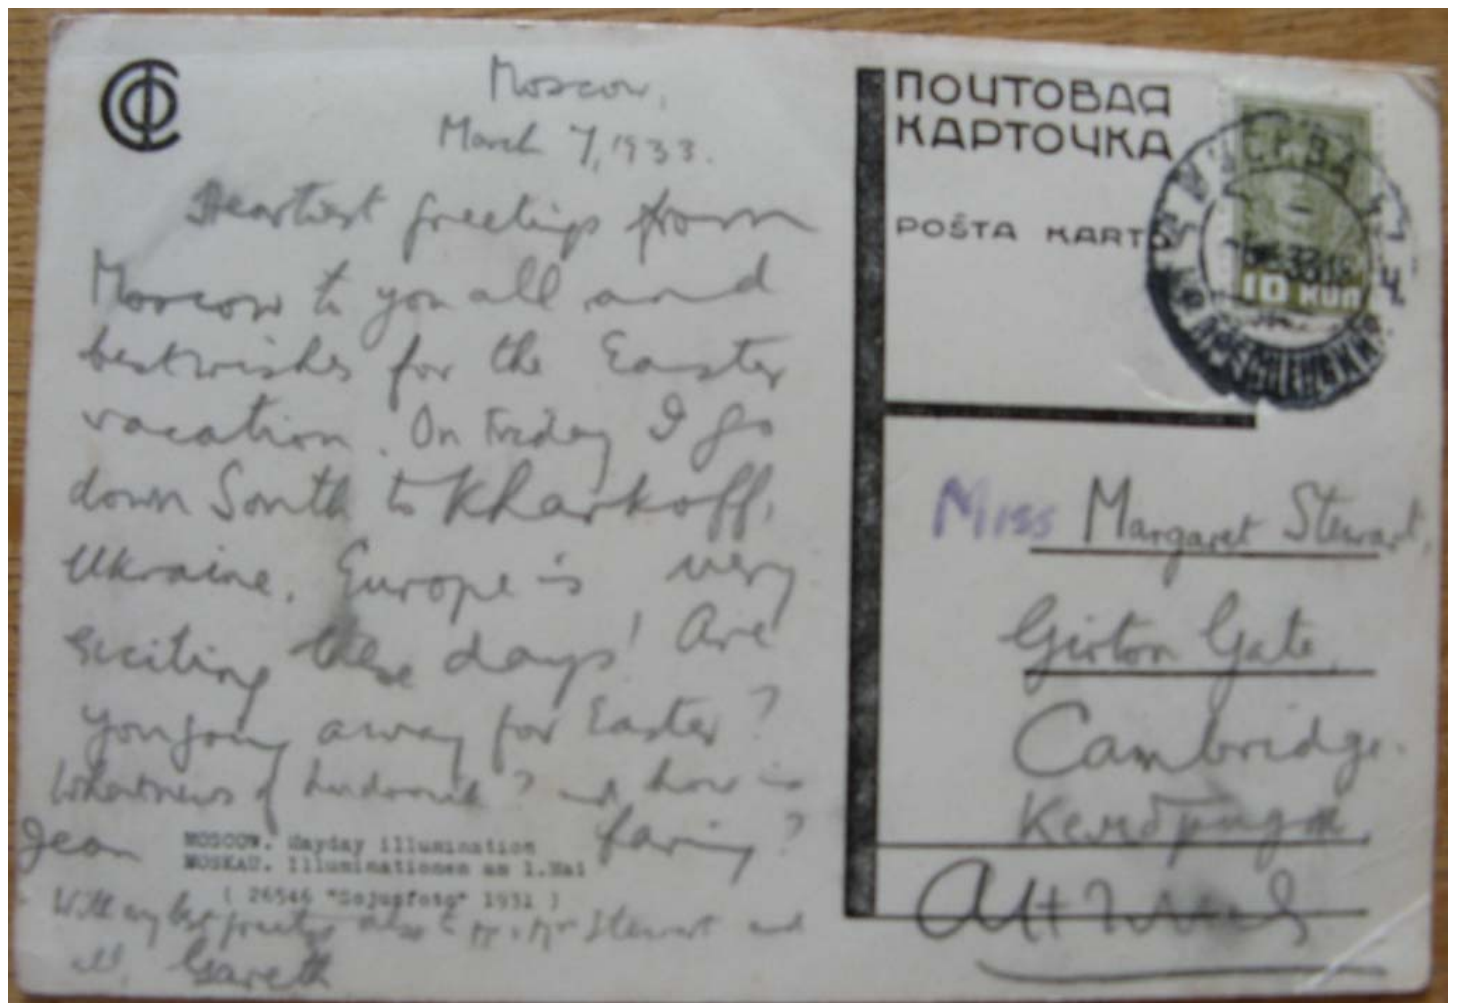 Moscow,
March 7, 1933.
Heartiest greetings from
Moscow to you all and
best wishes for the Easter
vacation. On Friday I go
down South to Kharkoff,
Ukraine. Europe is very
exciting these days! Are
you going away for Easter?
What news of ? and how is
Jean faring?
MOSCOW. Mayday illumination
MOSKAU. Illuminationen am 1.Mai
( 26546 "Sojusfoto" 1931 )
With my best greetings also to Mr. & Mrs Stewart and
all, Gareth
ПОЧТОВАЯ
КАРТОЧКА
POŠTA KARTO
10 КОП
Miss Margaret Stewart,
Girton Gate,
Cambridge.
Кембридж
Англия